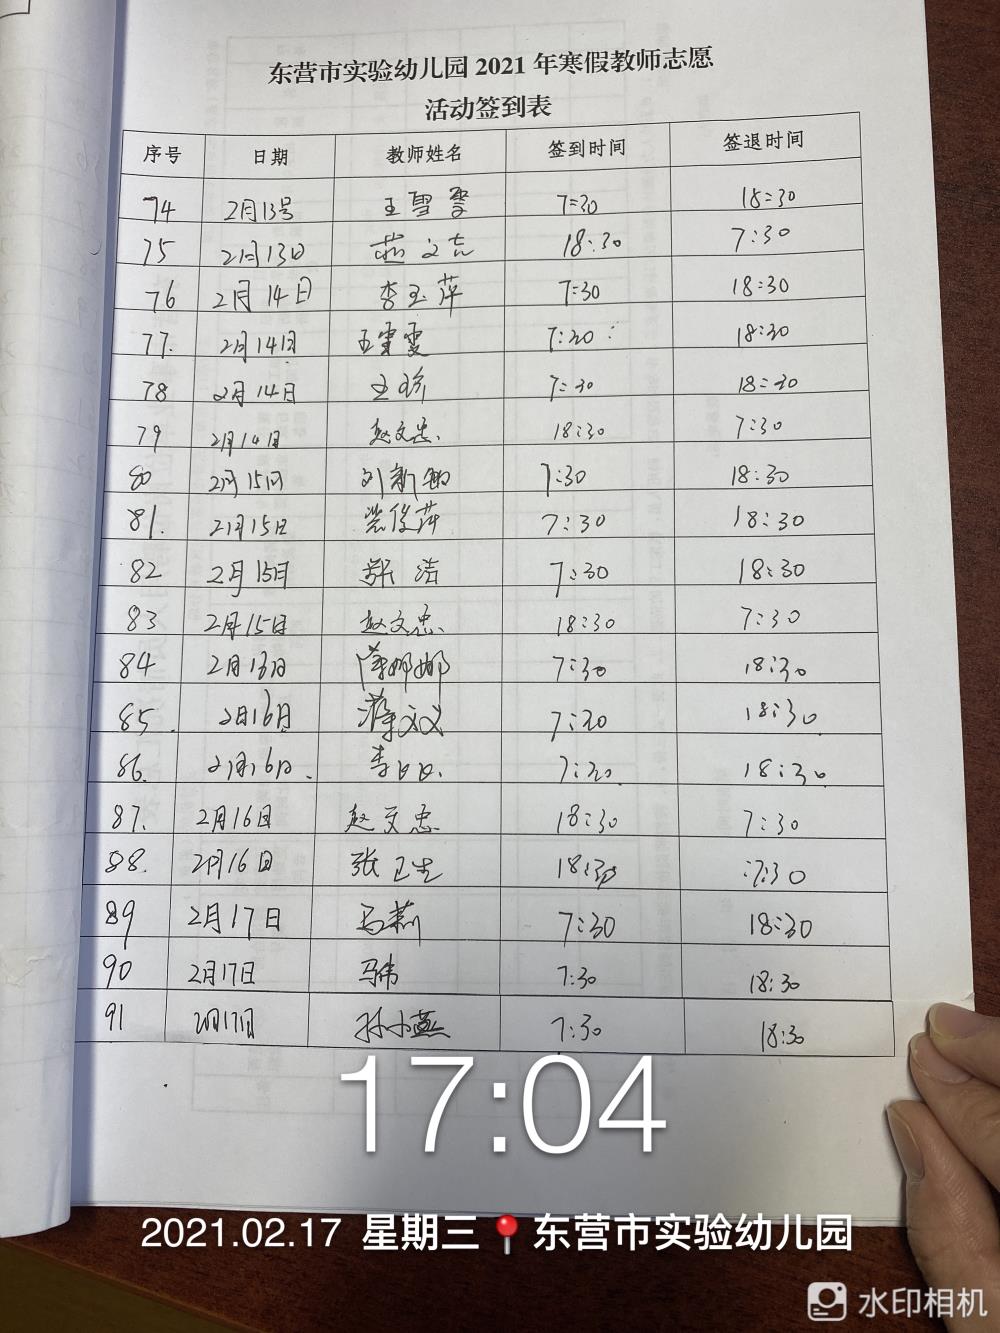 东营市实验幼儿园 2021 年寒假教师志愿
活动签到表
序号 日期 教师姓名 签到时间 签退时间
74 2月13号 王雪 7:30 18:30
75 2月13日 赵文志 18:30 7:30
76 2月14日 李玉萍 7:30 18:30
77. 2月14日 王雯雯 7:30 18:30
78 2月14日 王珍 7:30 18:30
79 2月14日 赵文忠. 18:30 7:30
80 2月15日 刘新 7:30 18:30
81. 2月15日 俊萍 7:30 18:30
82 2月15日 张洁 7:30 18:30
83 2月15日 赵文忠. 18:30 7:30
84 2月13日 薄娜娜 7:30 18:30
85. 2月16日 薄文文 7:30 18:30
86. 2月16日. 李日日. 7:30. 18:30
87. 2月16日 赵文忠 18:30 7:30
88. 2月16日 张卫生 18:30 7:30
89 2月17日 马莉 7:30 18:30
90 2月17日 马伟 7:30 18:30
91 2月17日 孙小燕 7:30 18:30
17:04
2021.02.17 星期三 东营市实验幼儿园
水印相机